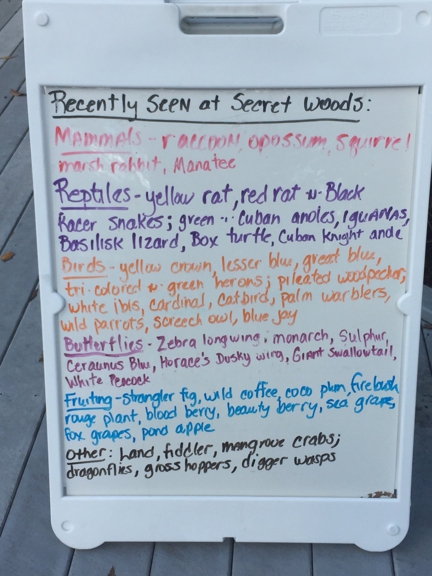 Recently Seen at Secret Woods:
Mammals - raccoon, opossum, squirrel
marsh rabbit, Manatee
Reptiles - yellow rat, red rat n- Black
Racer snakes; green n- Cuban anoles, iguanas,
Basilisk lizard, Box turtle, Cuban Knight anole
Birds - yellow crown, lesser blue, great blue,
tri-colored n- green herons; pileated woodpecker;
white ibis, cardinal, catbird, palm warblers,
wild parrots, screech owl, blue jay
Butterflies - Zebra longwing, monarch, Sulphur,
Ceraunus Blue, Horace's Dusky wing, Giant Swallowtail,
White Peacock
Fruiting - Strangler fig, wild coffee, coco plum, firebush
rouge plant, blood berry, beauty berry, sea grape,
fox grapes, pond apple
Other: Land, fiddler, mangrove crabs;
dragonflies, grasshoppers, digger wasps